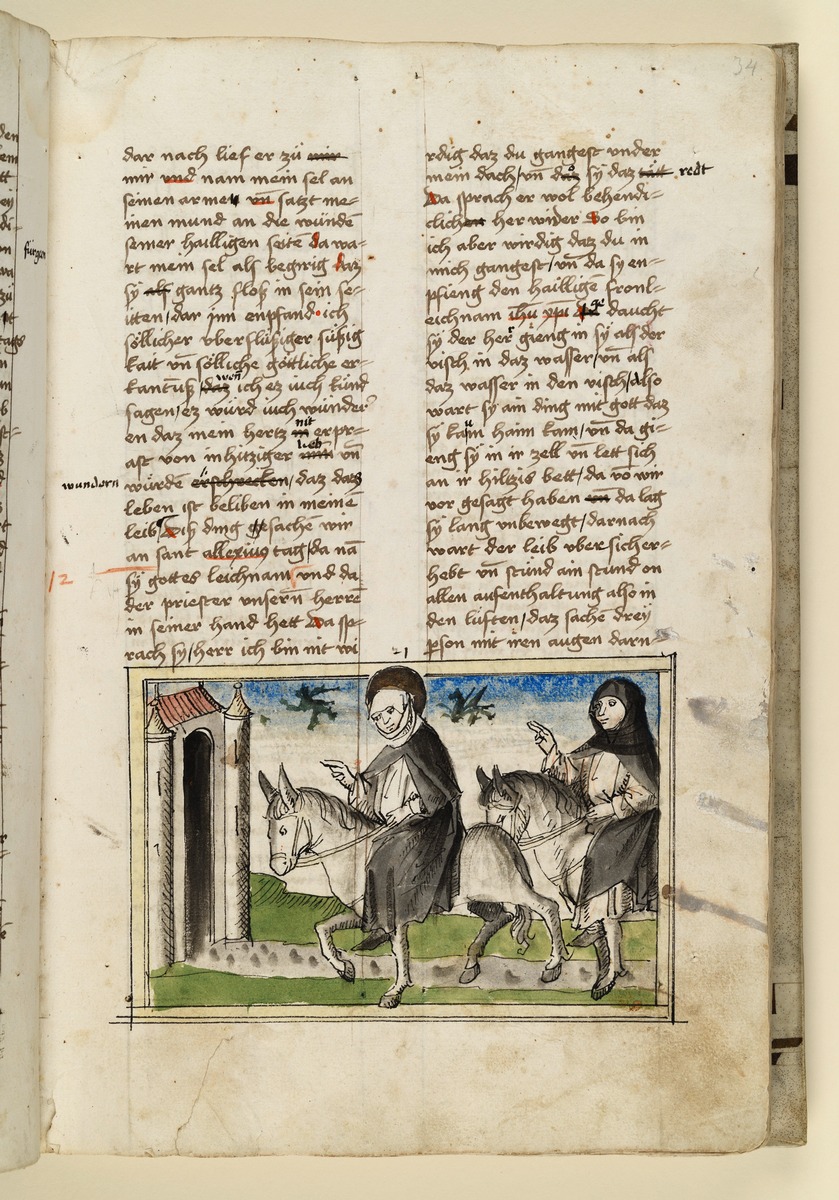 34
dar nach lief er zů mir
mir vnd nam mein sel an
seinen armen vn̄ satzt me-
inen mund an die wündē
seiner hailligen seitē da wa-
rt mein sel als begirig daz
sy alß gantz floß in sein se-
itten / dar jnn enpfand ich
söllicher vberflüßiger süßig
kait vn̄ sölliche göttliche er-
kantnuß daz wen ich ez iuch kund
sagen / ez würd iuch wunder
en daz mein hertz nit erpr-
ast von inhitziger lieb vn̄
wundern
würdē erschrecken / daz daz
leben ist beliben in meinē
leib Diß ding gesachen wir
12
an sant allexius tag / da nā
sy gottes leichnam vnd da
der priester vnsern herrē
in seiner hand hett Da sp-
rach sy / herr ich bin nit wi
rdig daz du gangest vnder
mein dach / vn̄ do sy daz tätt redt
Da sprach er wol behendi-
clichen her wider So bin
ich aber wirdig daz du in
mich gangest / vn̄ da sy en-
pfieng den haillige fronl-
eichnam ihū xp̄i daucht
sy der her gieng in sy als der
visch in daz wasser / vn̄ als
daz wasser in den visch / Also
wart sy ain ding mit gott daz
sy kaum haim kam / vn̄ da gi-
eng sy in ir zell vn lett sich
an ir hiltzis bett / da vō wir
vor gesagt haben vn̄ da lag
sy lang vnbewegt / darnach
wart der leib vbersicher-
hebt vn̄ stund ain stund on
allen aufenthaltung also in
den lüften / daz sachē drey
pson mit iren augen darn-
21
fürgen